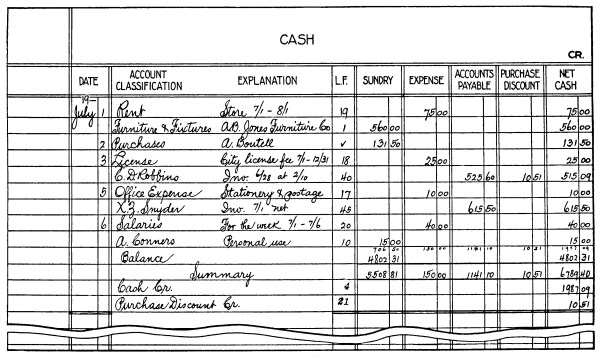 CASH
CR.
DATE ACCOUNT CLASSIFICATION EXPLANATION L.F. SUNDRY EXPENSE ACCOUNTS PAYABLE PURCHASE DISCOUNT NET CASH
19—
July 1 Rent Store 7/1 - 8/1 19 75 00 75 00
Furniture & Fixtures A.B. Jones Furniture Co 1 560 00 560 00
2 Purchases A. Boutell ✓ 131 50 131 50
3 License City license fee 7/1 - 12/31 18 25 00 25 00
C. D. Robbins Inv. 6/28 at 2/10 40 525 60 10 51 515 09
5 Office Expense Stationery & postage 17 10 00 10 00
X. Z. Snyder Inv. 7/1 net 45 615 50 615 50
6 Salaries For the week 7/1 - 7/6 20 40 00 40 00
A. Conners Personal use 10 15 00 15 00
706 50 150 00 1141 10 10 51 1987 09
Balance 4802 31 4802 31
Summary 5508 81 150 00 1141 10 10 51 6789 40
Cash Cr. 4 1987 09
Purchase Discount Cr. 21 10 51